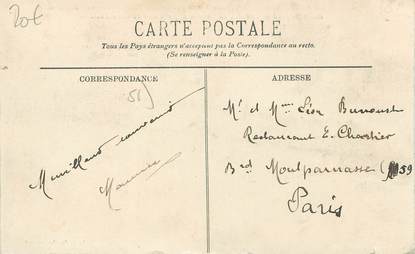 20€
CARTE POSTALE
Tous les Pays étrangers n'acceptent pas la Correspondance au recto.
(Se renseigner à la Poste).
CORRESPONDANCE
51)
souvenir
Maurice
ADRESSE
Mr et Mme Léon
Restaurant E. Chartier
Brd Montparnasse 59
Paris